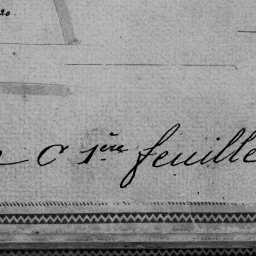 20
C 1ère feuille